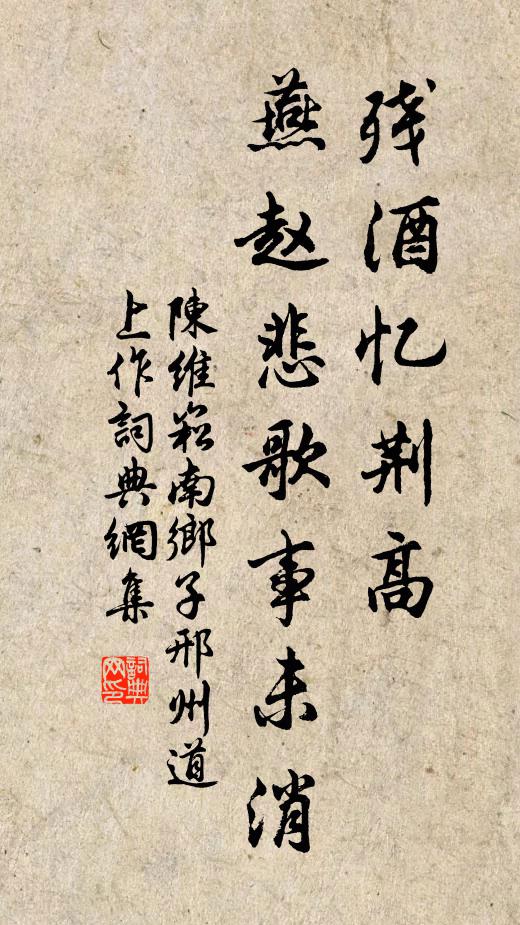 残酒忆荆高
燕赵悲歌事未消
陳維崧南鄉子邢州道
上作詞典網集
詞典
网印